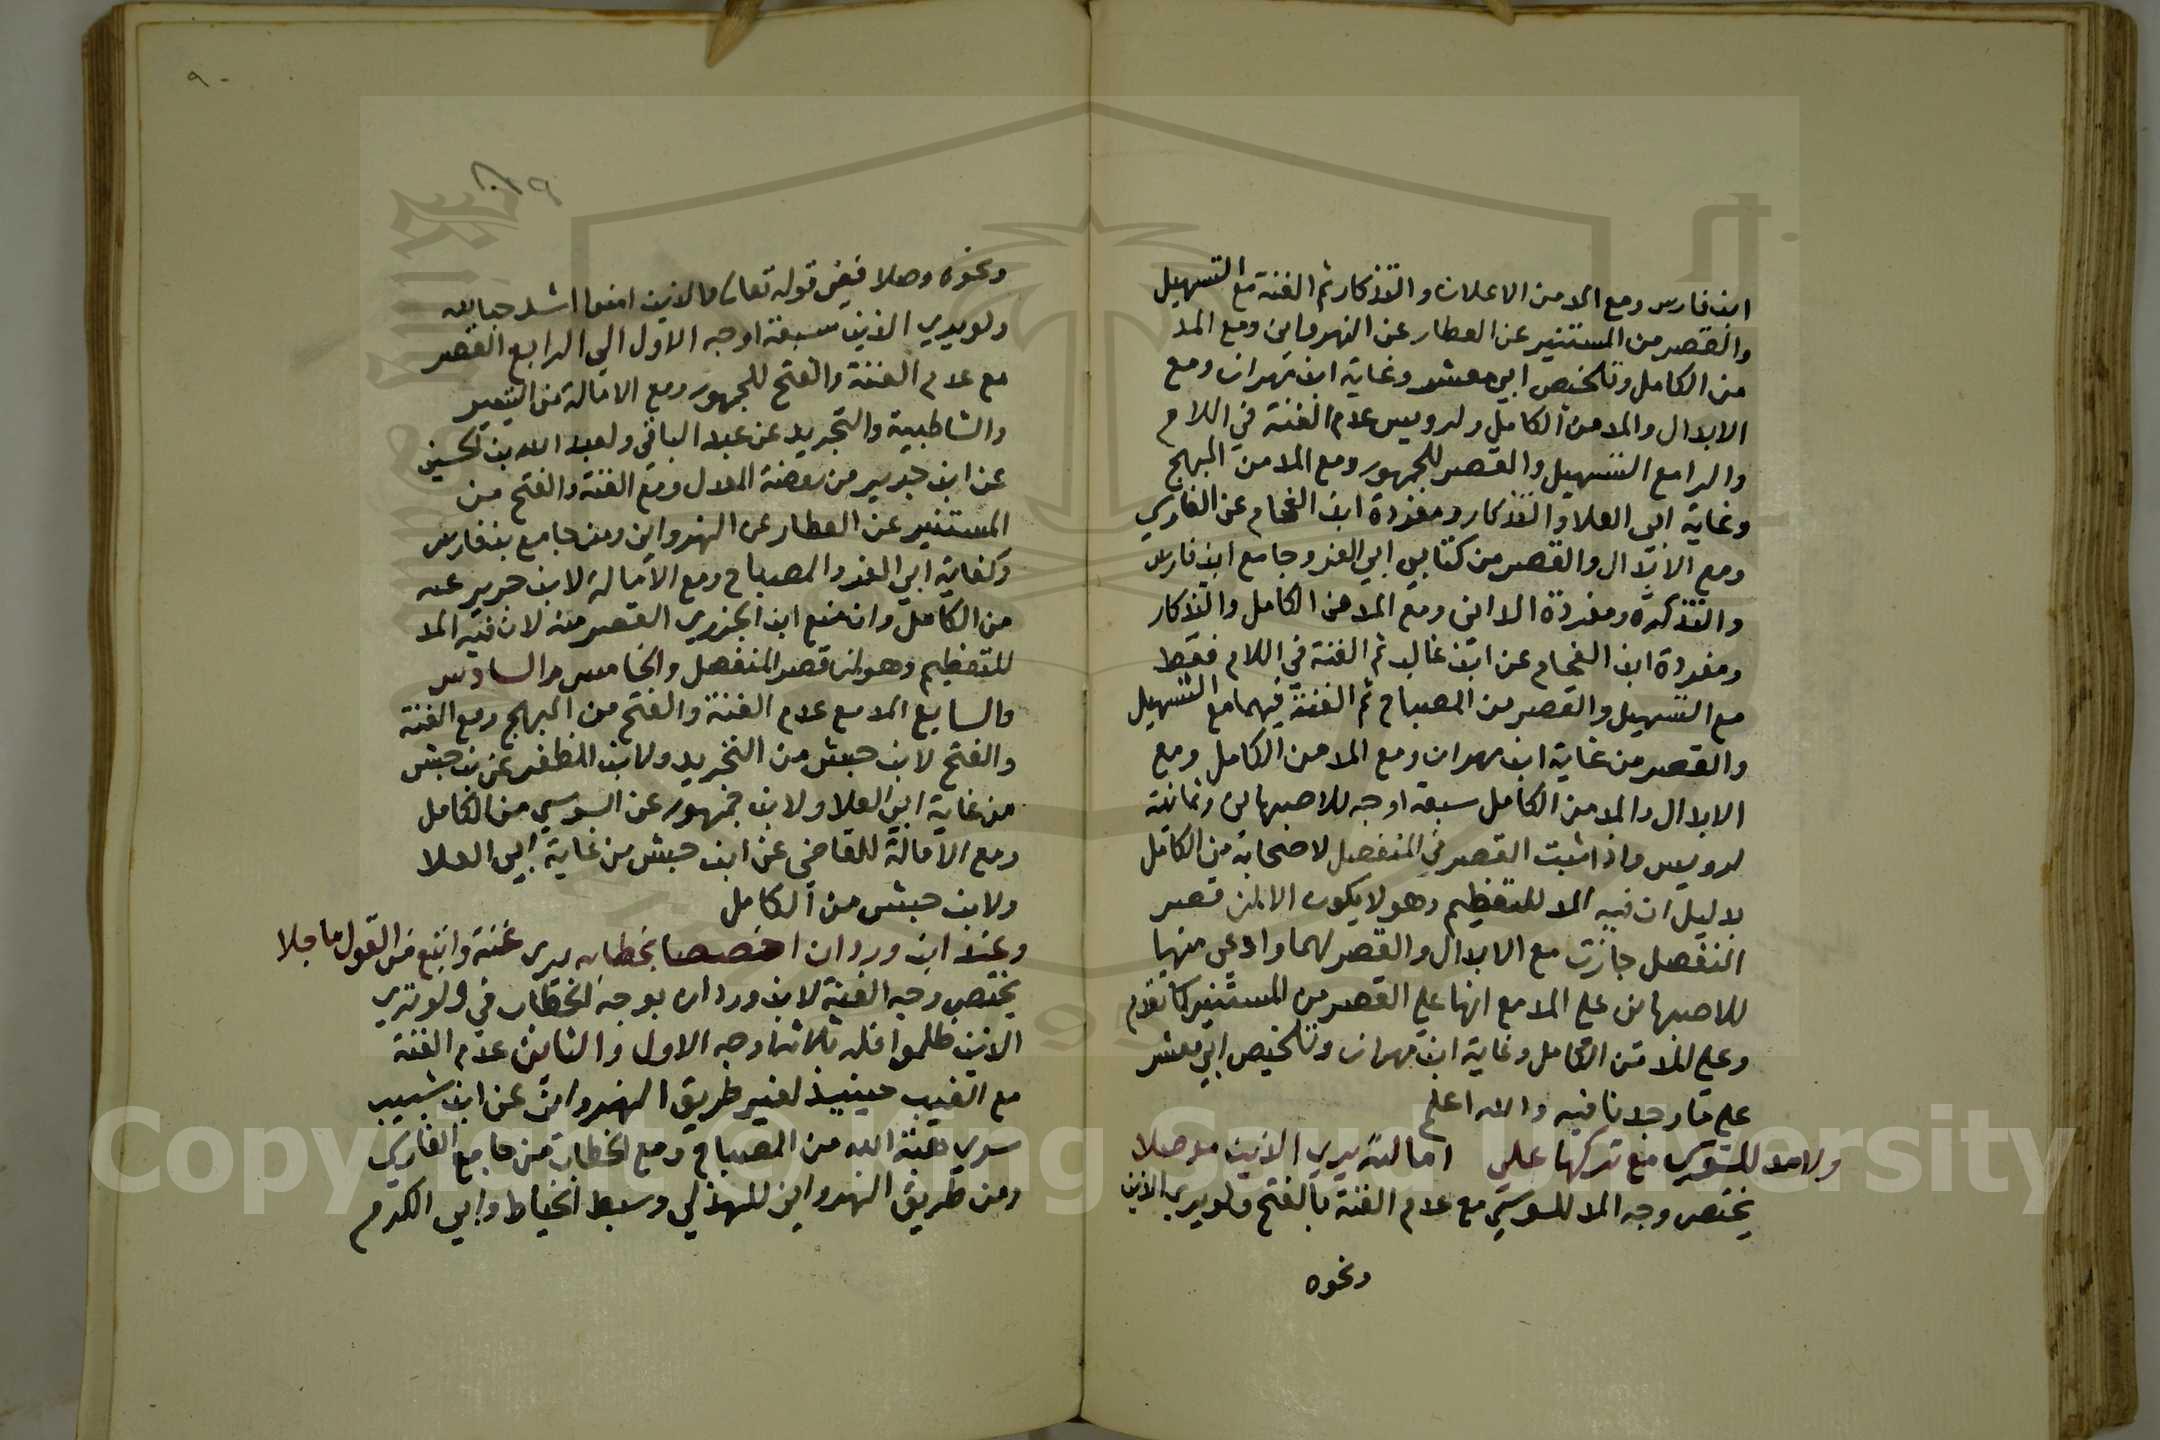 ابن فارس ومع المد من الاعلان والتذكار ثم الغنة مع التسهيل
والقصر من المستنير عن العطار عن النهرواني ومع المد
من الكامل وتلخيص ابي معشر وغاية ابن مهران ومع
الابدال والمد من الكامل ولرويس عدم الغنة في اللام
والرا مع التسهيل والقصر للجمهور ومع المد من المبهج
وغاية ابي العلا والتذكار ومفردة ابن الفحام عن الفارسي
ومع الابدال والقصر من كتابي ابي العز وجامع ابن فارس
والتذكرة ومفردة الداني ومع المد من الكامل والتذكار
ومفردة ابن الفحام عن ابن غالب ثم الغنة في اللام فقط
مع التسهيل والقصر من المصباح ثم الغنة فيهما مع التسهيل
والقصر من غاية ابن مهران ومع المد من الكامل ومع
الابدال والمد من الكامل سبعة اوجه للاصبهاني وثمانية
لرويس واذا ثبت القصر في المنفصل لاصحابه من الكامل
بدليل ان فيه المد للتعظيم وهو لا يكون الا لمن قصر
المنفصل جازت مع الابدال والقصر لهما وادعى منهيا
للاصبهاني على المد مع انها على القصر من المستنير كما تقدم
وعلى المد من الكامل وغاية ابن مهران وتلخيص ابي معشر
على ما وجدنا فيه والله اعلم
ولا مد للسوسي مع تركها على امالته يري الذين موصلا
يختص وجه المد للسوسي مع عدم الغنة بالفتح ولو يري الذين
ونحوه
٩٠
٨٩
ونحوه وصلا ففي قوله تعالى والذين امنوا اشد حبا لله
ولو يري الذين سبعة اوجه الاول الي الرابع القصر
مع عدم الغنة والفتح للجمهور ومع الامالة من التيسير
والشاطبية والتجريد عن عبد الباقي ولعبد الله بن الحسين
عن ابن جرير من روضة المعدل ومع الغنة والفتح من
المستنير عن العطار عن النهرواني ومن جامع بن فارس
وكفاية ابي العز والمصباح ومع الامالة لابن جرير عنه
من الكامل وان منع ابن الجزري القصر منه لان فيه المد
للتعظيم وهو لمن قصر المنفصل والخامس والسادس
والسابع المد مع عدم الغنة والفتح من المبهج ومع الغنة
والفتح لابن حبش من التجريد ولابن المظفر عن بن حبش
من غاية ابي العلا ولابن جمهور عن السوسي من الكامل
ومع الامالة للقاضي عن ابن حبش من غاية ابي العلا
ولابن حبش من الكامل
وعند ابن وردان اخصصا بخطابه يري غنة واتبع من القول ما جلا
يختص وجه الغنة لابن وردان بوجه الخطاب في ولو تري
الذين ظلموا فله ثلاثة اوجه الاول والثاني عدم الغنة
مع الغيب حينيذ لغير طريق النهرواني عن ابن شبيب
سوي هبة الله من المصباح ومع الخطاب من جامع الفارسي
ومن طريق النهرواني للهذلي وسبط الخياط وابي الكرم
Copyright © King Saud University